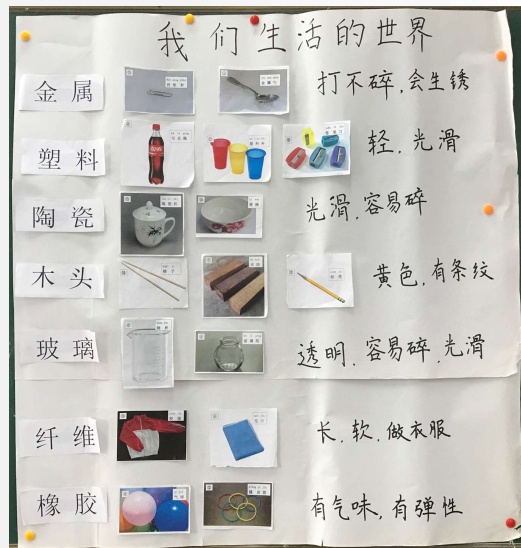 我们生活的世界
金属 打不碎,会生锈
塑料 轻,光滑
陶瓷 光滑,容易碎
木头 黄色,有条纹
玻璃 透明,容易碎,光滑
纤维 长,软,做衣服
橡胶 有气味,有弹性